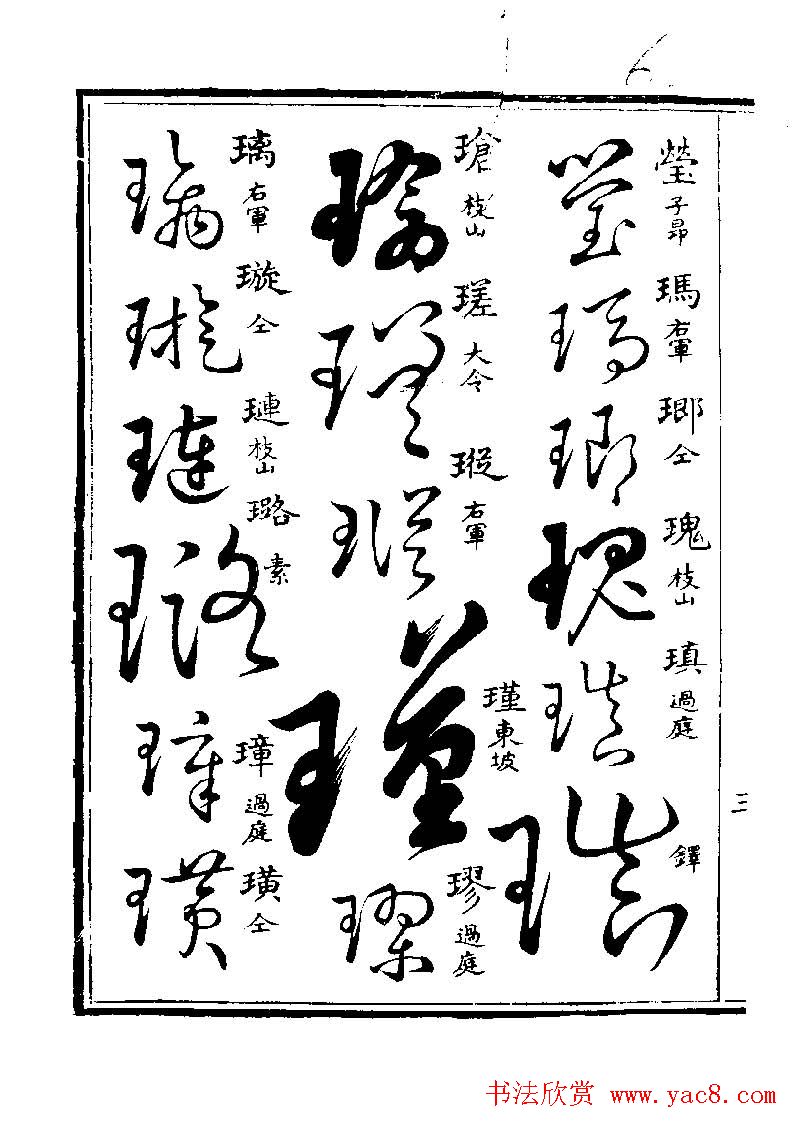 瑩 子昂 瑪 右軍 瑯 仝 瑰 枝山 瑱 過庭 鐸
瑲 枝山 瑳 大令 瑽 右軍 瑾 東坡 璆 過庭
璃 右軍 璇 仝 璉 枝山 璐 素 璋 過庭 璜 仝
三
书法欣赏 www.yac8.com